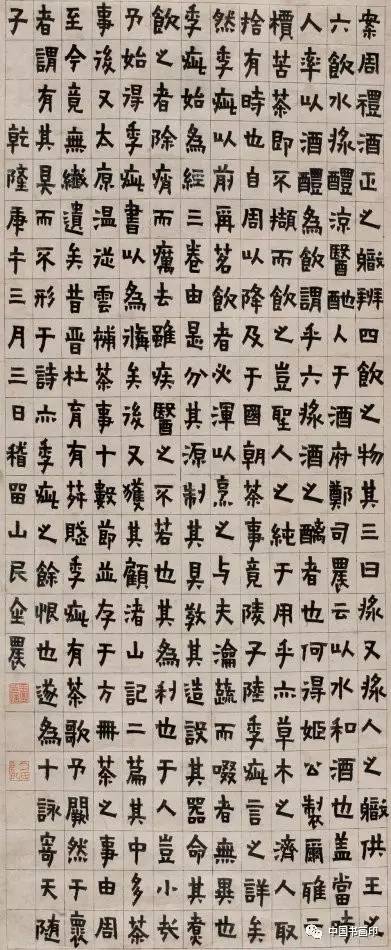 案周禮酒正之職辨四飲之物其三曰漿又漿人之職供王之
六飲水漿醴涼醫酏人于酒府鄭司農云以水和酒也盖當時
人率以酒醴為飲謂乎六漿酒之醨者也何得姬公製爾雅云
檟苦茶即不擷而飲之豈聖人之純于用乎亦草木之濟人取
捨有時也自周以降及于國朝茶事竟陵子陸季疵言之詳矣
然季疵以前再茗飲者必渾以烹之与夫瀹蔬而啜者無異也
季疵始為經三卷由是分其源制其具教其造設其器命其煮
飲之者除癠而癘去雖疾醫之不若也其為利也于人豈小
予始得季疵書以為備矣後又獲其顧渚山記二篇其中多茶
事後又太原温從雲補茶事十數節並存于方冊茶之事由周
至今竟無纖遺矣昔晉杜育有荈賦季疵有茶歌予闕然于懷
者謂有其具而不形于詩亦季疵之餘恨也遂為十詠寄天随
子 乾隆庚午三月三日稽留山民金農
中国书画印